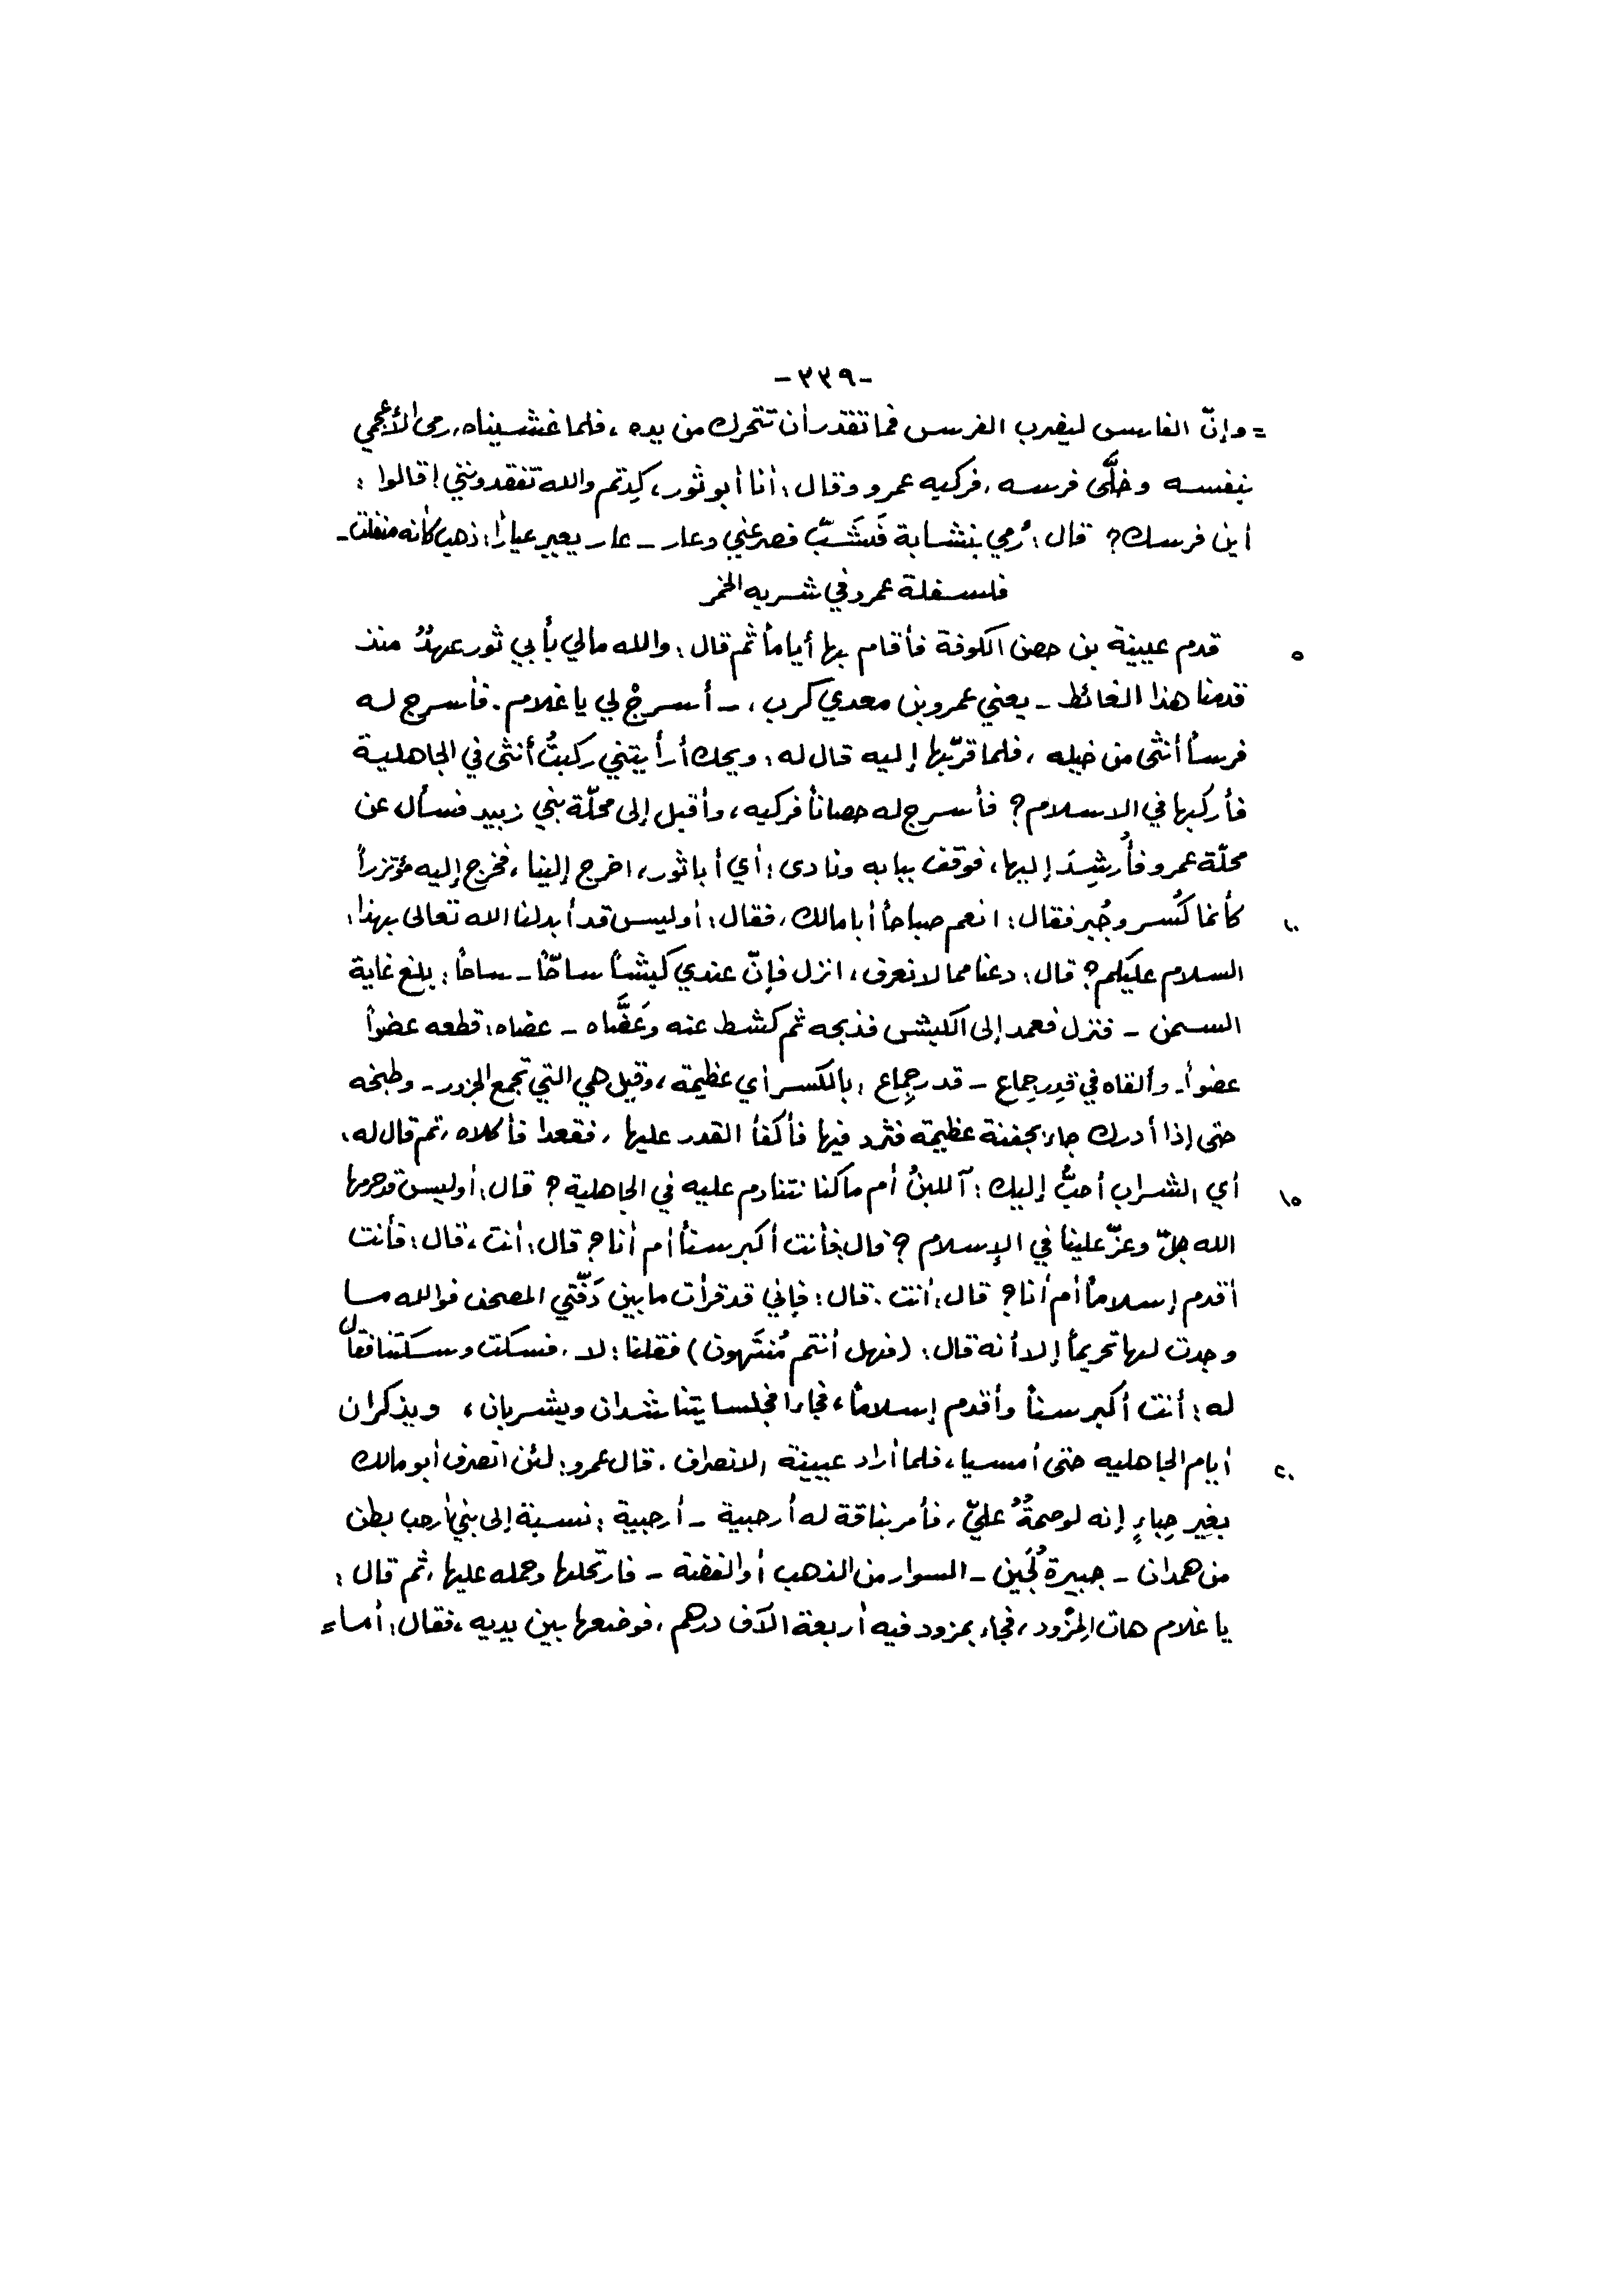 -٣٣٩-
= وإنّ الفارس ليضرب الفرس فما تقدر أن تتحرك من يده ، فلما غشيناه ، رمى الأعجمي
بنفسه وخلَّى فرسه ، فركبه عمرو وقال : أنا أبو ثور ، كِدتم والله تفقدونني ! قالوا :
أين فرسك؟ قال : رُمي بنشابة فَشَبّ فصرعني وعار - عار يعير عياراً : ذهب كأنه منفلت -
فلسفة عمرو في شربه الخمر
٥ قدم عيينة بن حصن الكوفة فأقام بها أياماً ثم قال : والله مالي بأبي ثور عهدٌ منذ
قدمنا هذا الغائط - يعني عمرو بن معدي كرب ، - أسرجْ لي يا غلام . فأسرج له
فرساً أنثى من خيله ، فلما قرّبها إليه قال له : ويحك أرأيتني ركبتُ أنثى في الجاهلية
فأركبها في الاسلام؟ فأسرج له حصاناً فركبه ، وأقبل إلى محلّة بني زبيد فسأل عن
محلّة عمرو فأُرشِدَ إليها ، فوقف ببابه ونادى : أي أبا ثور ، اخرج إلينا ، فخرج إليه مؤتزراً
١٠ كأنما كُسر وجُبر فقال : انعم صباحاً أبا مالك ، فقال : أوليس قد أبدلنا الله تعالى بهذا :
السلام عليكم؟ قال : دعنا مما لا نعرف ، انزل فإنّ عندي كبشاً ساحّاً - ساحاً : بلغ غاية
السمن - فنزل فعمد إلى الكبش فذبحه ثم كشط عنه وعَضَّاه - عضاه : قطعه عضواً
عضواً - وألقاه في قِدر جِماع - قدر جِماع : بالكسر أي عظيمة ، وقيل هي التي تجمع الجزور - وطبخه
حتى إذا أدرك جاء بجفنة عظيمة فثرد فيها فأكفأ القدر عليها ، فقعدا فأكلاه ، ثم قال له :
١٥ أي الشراب أحبُّ إليك : آللبنُ أم ما كنا نتنادم عليه في الجاهلية ؟ قال : أوليس قد حرمها
الله جلّ وعزّ علينا في الإسلام ؟ قال : فأنت أكبر سناً أم أنا؟ قال : أنت ، قال : فأنت
أقدم إسلاماً أم أنا؟ قال : أنت . قال : فإني قد قرأت ما بين دَفّتي المصحف فوالله ما
وجدت لها تحريماً إلا أنه قال : (فهل أنتم مُنتَهون) فقلنا : لا ، فسكت وسكتنا فقال
له : أنت أكبر سناً وأقدم إسلاماً ، فجاءا فجلسا يتناشدان ويشربان ، ويذكران
٢٠ أيام الجاهليه حتى أمسيا ، فلما أراد عيينة الانصراف . قال عمرو : لئن انصرف أبو مالك
بغيرِ حِباءٍ إنه لوصمةٌ عليّ ، فأمر بناقة له أرحبية - أرحبية : نسبة إلى بني أرحب بطن
من همدان - جبيرة لُجَين - السوار من الذهب أو الفضة - فارتحلها وحمله عليها ، ثم قال :
يا غلام هات المِزْود ، فجاء بمزود فيه أربعة آلاف درهم ، فوضعها بين يديه ، فقال : أما =